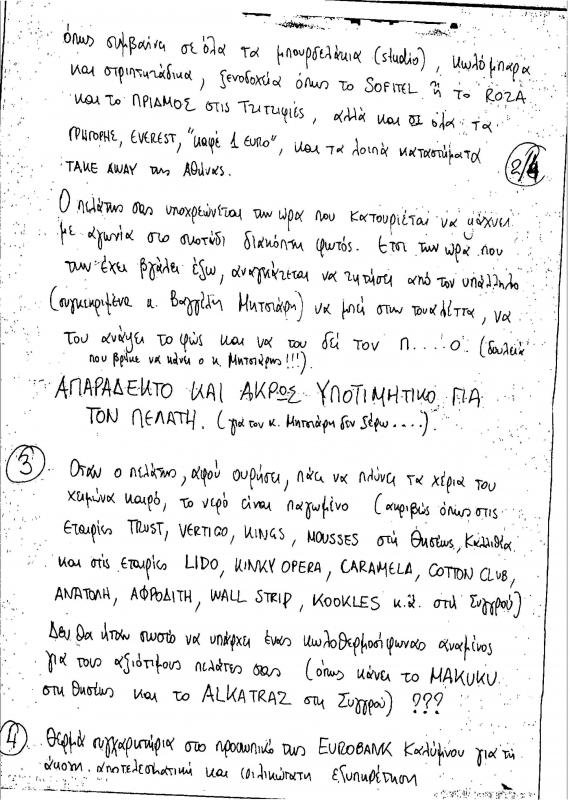 όπως συμβαίνει σε όλα τα μπουρδελάκια (studio), κωλόμπαρα
και στριπτιτζάδικα, ξενοδοχεία όπως το SOFITEL ή το ROZA
και το ΠΡΙΑΜΟΣ στις Τζιτζιφιές, αλλά και όλα τα
ΓΡΗΓΟΡΗΣ, EVEREST, "καφέ 1 ευρο", και τα λοιπά καταστήματα
TAKE AWAY της Αθήνας.
2/4
Ο πελάτης σας υποχρεώνεται την ώρα που κατουριέται να ψάχνει
με αγωνία στο σκοτάδι διακόπτη φωτός. Έτσι την ώρα που
την έχει βγάλει έξω, αναγκάζεται να ζητήσει από τον υπάλληλο
(συγκεκριμένα κ. Βαγγέλη Μητσιάρη) να μπεί στην τουαλέττα, να
του ανάψει το φώς και να του δεί τον Π....Ο. (δουλειά
που βρήκε να κάνει ο κ. Μητσιάρης!!!).
ΑΠΑΡΑΔΕΚΤΟ ΚΑΙ ΑΚΡΩΣ ΥΠΟΤΙΜΗΤΙΚΟ ΓΙΑ
ΤΟΝ ΠΕΛΑΤΗ. (για τον κ. Μητσιάρη δεν ξέρω....).
3 Οταν ο πελάτης, αφού ουρήσει, πάει να πλύνει τα χέρια του
χειμώνα καιρό, το νερό είναι παγωμένο (ακριβώς όπως στις
εταιρίες TRUST, VERTIGO, KINGS, MOUSSES στη Θησέως, Καλλιθέα
και στίς εταιρίες LIDO, KINKY OPERA, CARAMELA, COTTON CLUB,
ΑΝΑΤΟΛΗ, ΑΦΡΟΔΙΤΗ, WALL STRIP, KOOKLES κ.ά. στη Συγγρού)
Δεν θα ήταν σωστό να υπάρχει ένας κωλοθερμοσίφωνας αναμένος
για τους αξιότιμους πελάτες σας (όπως κάνει το MAKUKU
στη Θησέως και το ALKATRAZ στη Συγγρού) ???
4 Θερμά συγχαρητήρια στο προσωπικό της EUROBANK Καλύμνου για τη
άκοπη αποτελεσματική και φιλικώτατη εξυπηρέτηση